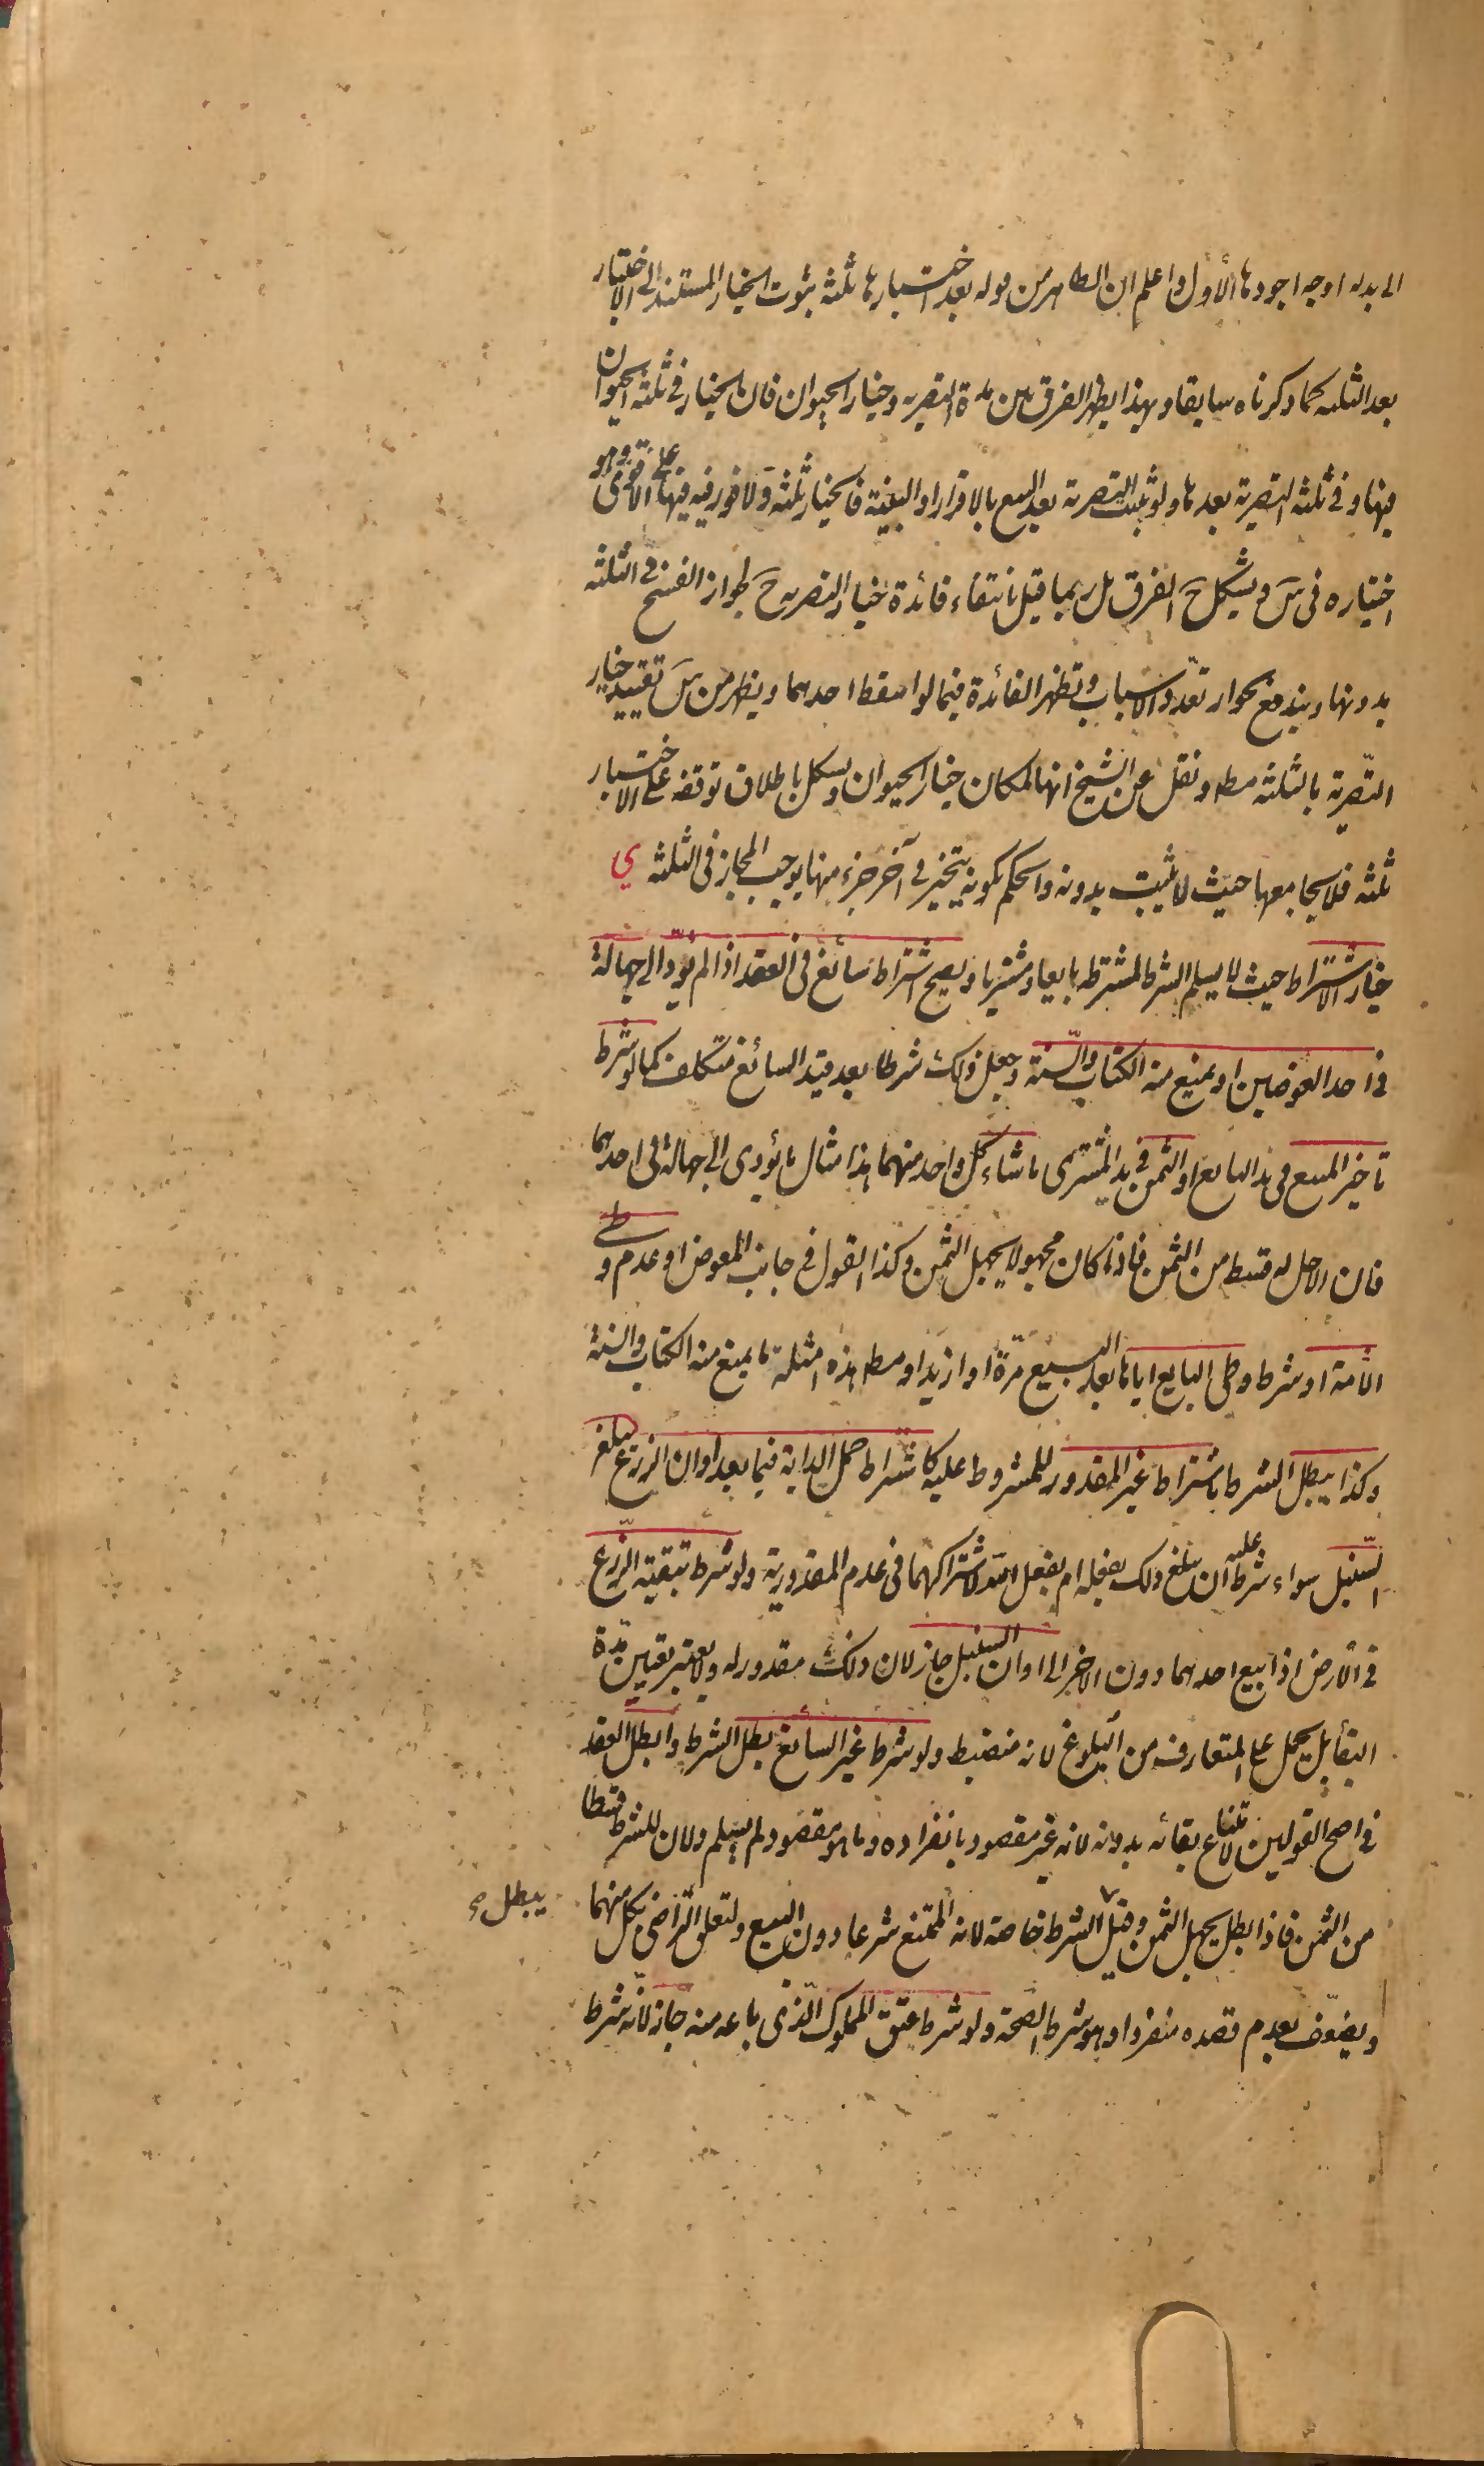 الى بدله اوجه اجودها الأول واعلم ان الظاهر من قوله بعد اختبارها ثلثة ثبوت الخيار المستند الى الاختبار
بعد الثلثه كما ذكرناه سابقا وبهذا يظهر الفرق بين مدة التصريه وخيار الحيوان فان الخيار في ثلثة الحيوان
فيها وفي ثلثه التصرية بعدها ولو ثبت التصرية بعد البيع بالاقرار او البينة فالخيار ثلثة ولا فور فيه فيها على الاقوى وهو
اختياره في سَ ويشكل حَ الفرق بل ربما قيل بانتفاء فائدة خيار التصريه حَ لجواز الفسخ في الثلثه
بدونها ويندفع بجواز تعدد الاسباب وتظهر الفائدة فيما لو اسقط احدهما ويظهر من سَ تقييد خيار
التصرية بالثلثه مط ونقل عن الشيخ انها لمكان خيار الحيوان ويشكل باطلاق توقفه على الاختبار
ثلثه فلا يجامعها حيث لا يثبت بدونه والحكم بكونه يتخير في آخر جزء منها يوجب المجاز في الثلثه ي
خيار الاشتراط حيث لا يسلم الشرط لمشترطه بايعا ومشتريا ويصح اشتراط سائغ في العقد اذا لم يؤد الى جهالة
في احد العوضين او يمنع منه الكتاب والسنة وجعل ذلك شرطا بعد قيد السائغ متكلف كما لو شرط
تاخير المبيع في يد البايع او الثمن في يد المشترى ما شاء كل واحد منهما هذا مثال ما يؤدى الى جهالة في احدهما
فان الاجل له قسط من الثمن فاذا كان مجهولا يجهل الثمن وكذا القول في جانب المعوض او عدم وطي
الأمة او شرط وطي البايع اياها بعد البيع مرّة او ازيد او مط هذه امثلة ما يمنع منه الكتاب والسنة
وكذا يبطل الشرط باشتراط غير المقدور للمشروط عليه كاشتراط حمل الدابة فيما بعد او ان الزرع يبلغ
السّنبل سواء شرط عليه ان يبلغ ذلك بفعله ام بفعل الله لاشتراكهما في عدم المقدورية ولو شرط تبقية الزّرع
في الأرض اذا بيع احدهما دون الاخر الى اوان السنبل جاز لان ذلك مقدور له ولا يعتبر تعيين مدة
البقأ بل يحمل على المتعارف من البلوغ لانه منضبط ولو شرط غير السائغ بطل الشرط وابطل العقد
في اصح القولين لامتناع بقائه بدونه لانه غير مقصود بانفراده وما هو مقصود لم يسلم ولان للشرط قسطا
من الثمن فاذا بطل يجهل الثمن وقيل الشرط خاصة لانه الممتنع شرعا دون البيع ولتعلق التراضى بكل منهما
يبطل
ويضعّف بعدم قصده منفردا وهو شرط الصّحة ولو شرط عتق المملوك الّذى باعه منه جاز لانّه شرط